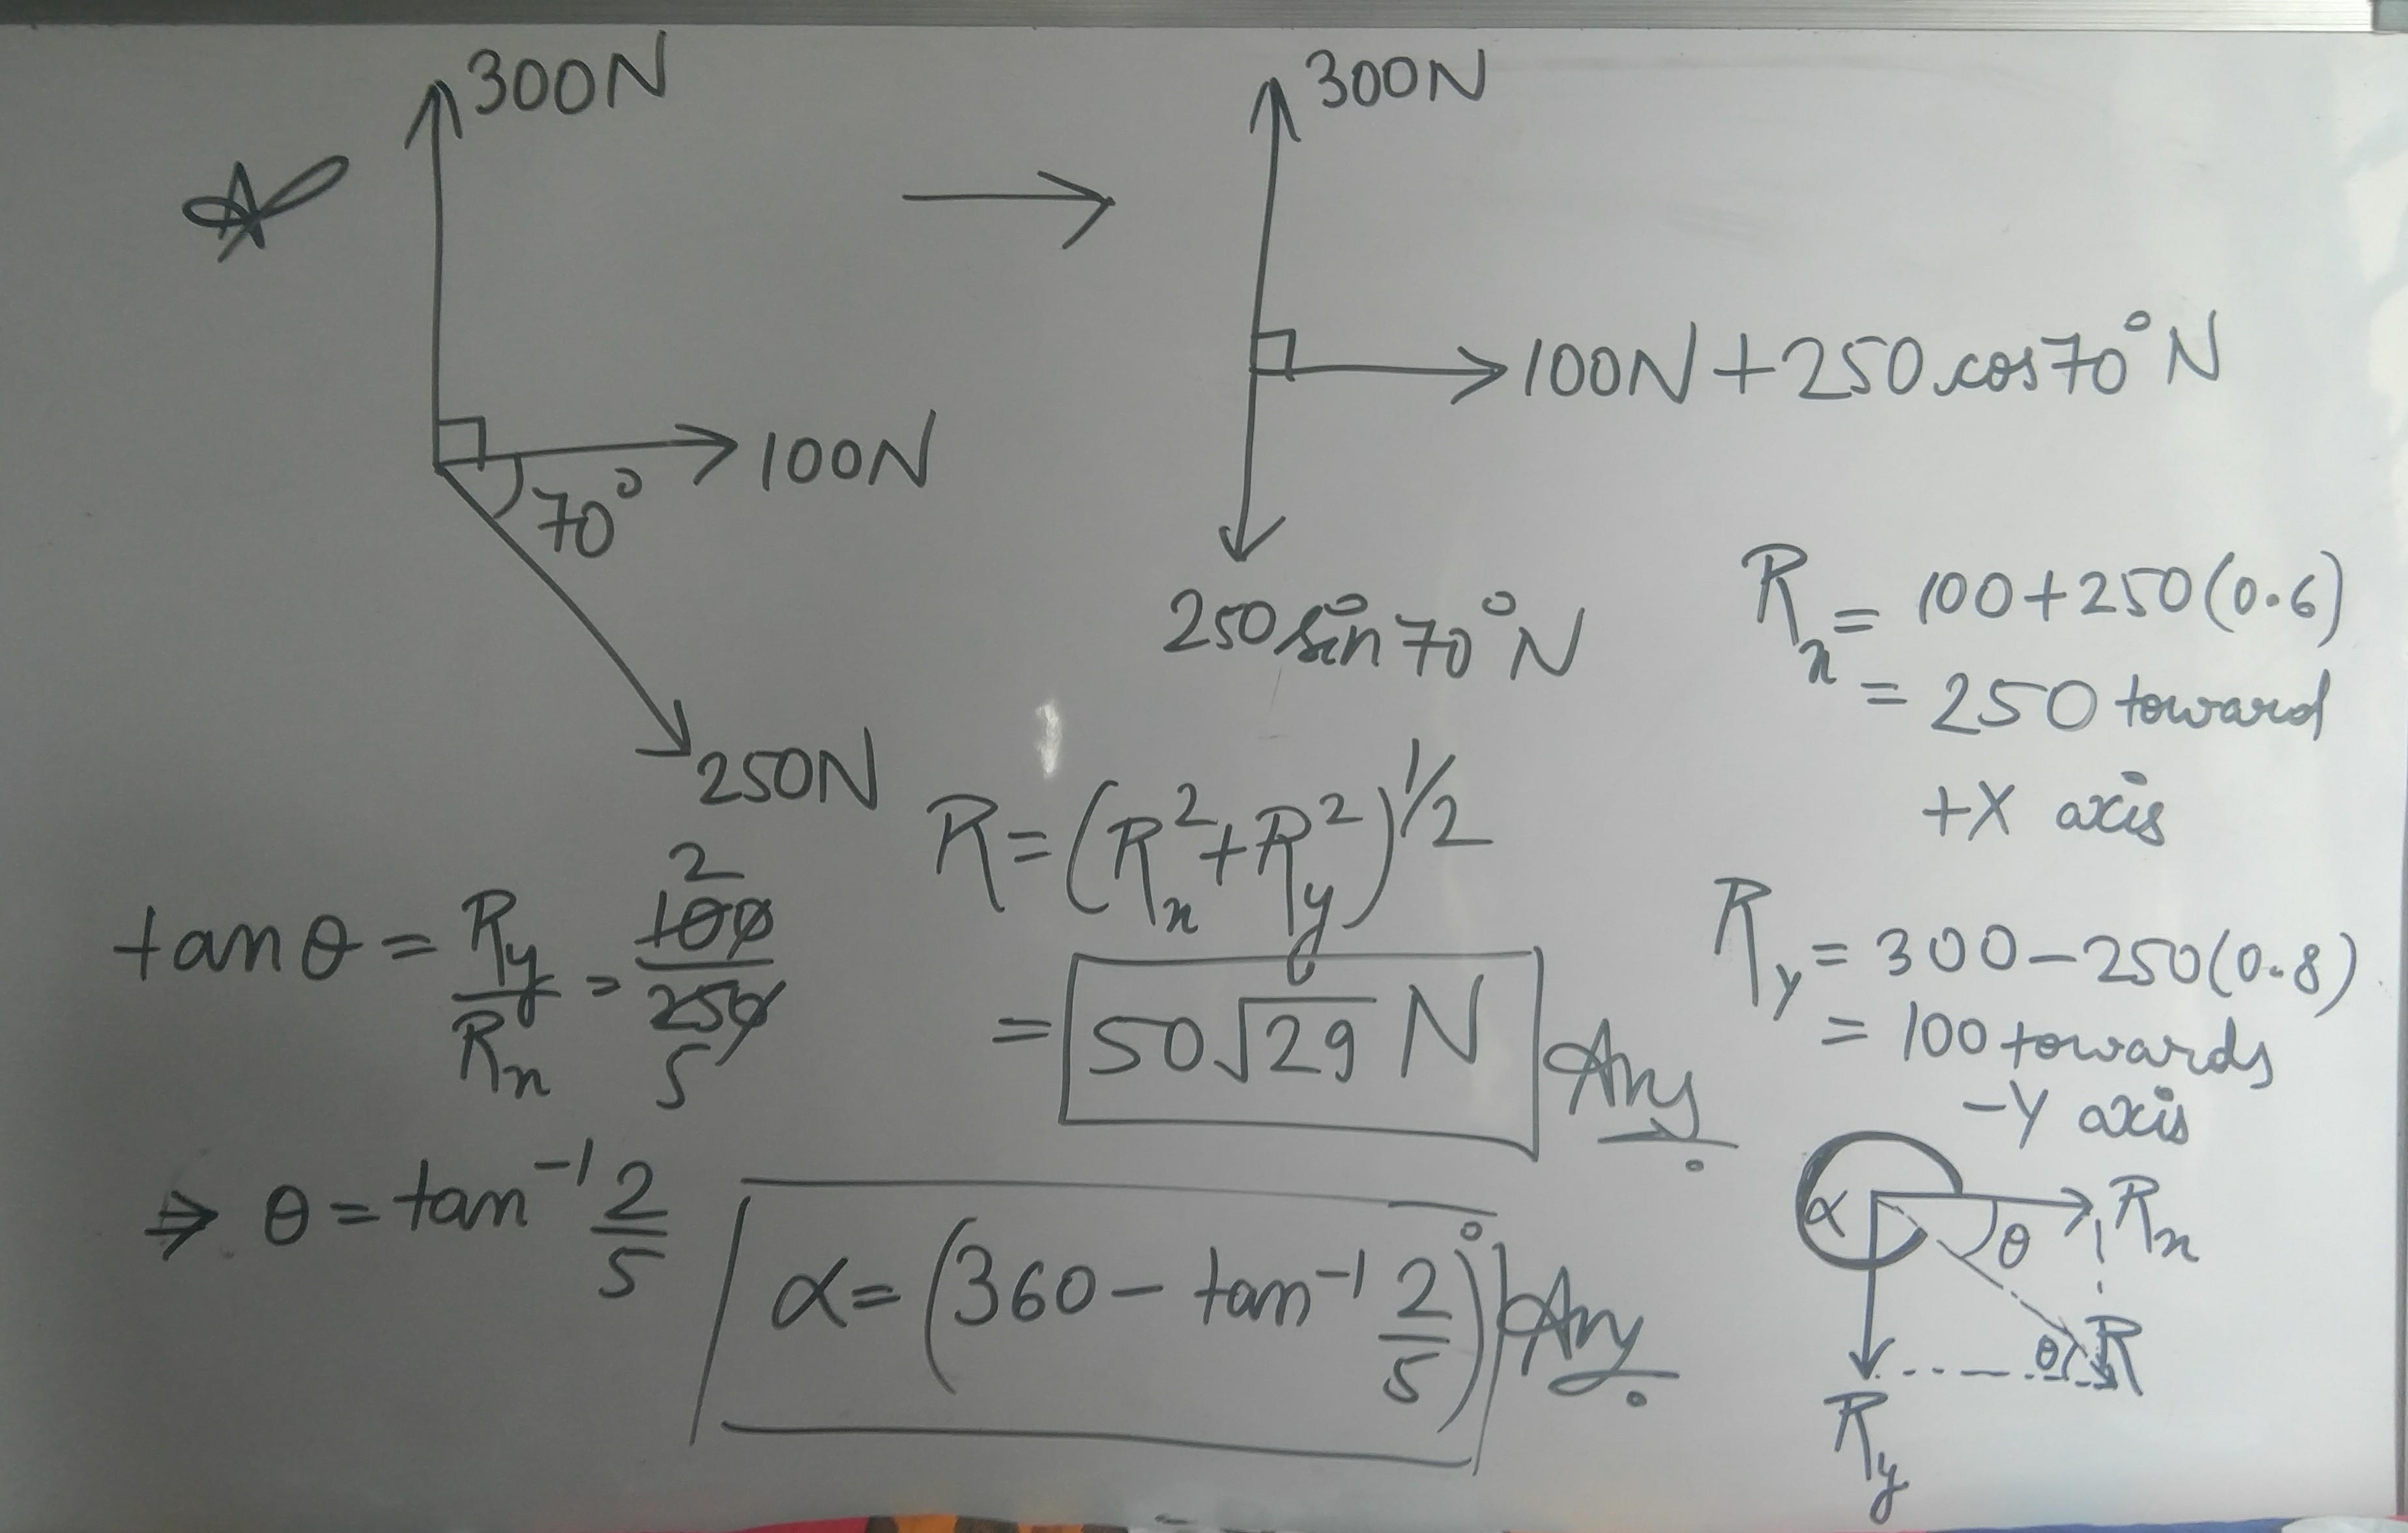 300N
100N
70°
250N
300N
100N+250 cos70°N
250 sin 70°N
Rx = 100+250(0.6)
= 250 toward
+X axis
Ry = 300-250(0.8)
= 100 towards
-Y axis
R=(Rx²+Ry²)^1/2
= 50√29 N Ans
tanθ = Ry/Rx = 100/250 2/5
⇒ θ = tan⁻¹ 2/5
α = (360 - tan⁻¹ 2/5)° Ans
α
θ
Rx
θ
R
Ry